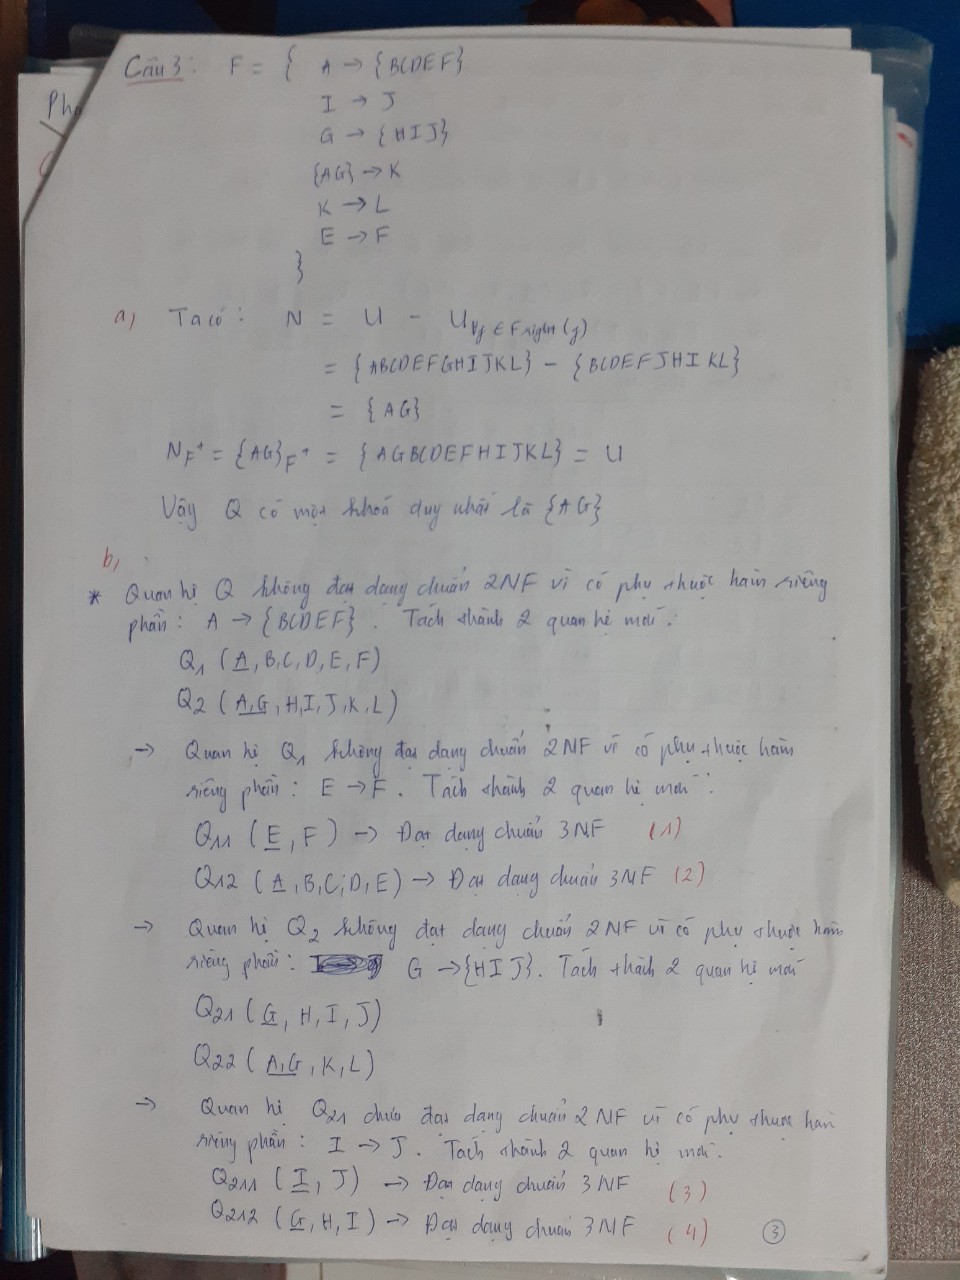 Phụ
Câu 3: F = { A → {BCDEF}
I → J
G → {HIJ}
{AG} → K
K → L
E → F
}
a, Ta có: N = U - U∀f ∈ F right (f)
= {ABCDEFGHIJKL} - {BCDEFJHIKL}
= {AG}
NF+ = {AG}F+ = {AGBCDEFHIJKL} = U
Vậy Q có một khoá duy nhất là {AG}
b,
* Quan hệ Q không đạt dạng chuẩn 2NF vì có phụ thuộc hàm riêng
phần: A → {BCDEF}. Tách thành 2 quan hệ mới:
Q1 (A, B, C, D, E, F)
Q2 (A, G, H, I, J, K, L)
→ Quan hệ Q1 không đạt dạng chuẩn 2NF vì có phụ thuộc hàm
riêng phần: E → F. Tách thành 2 quan hệ mới:
Q11 (E, F) → Đạt dạng chuẩn 3NF (1)
Q12 (A, B, C, D, E) → Đạt dạng chuẩn 3NF (2)
→ Quan hệ Q2 không đạt dạng chuẩn 2NF vì có phụ thuộc hàm
riêng phần: G → {HIJ}. Tách thành 2 quan hệ mới
Q21 (G, H, I, J)
Q22 (A, G, K, L)
→ Quan hệ Q21 chưa đạt dạng chuẩn 2NF vì có phụ thuộc hàm
riêng phần: I → J. Tách thành 2 quan hệ mới.
Q211 (I, J) → Đạt dạng chuẩn 3NF (3)
Q212 (G, H, I) → Đạt dạng chuẩn 3NF (4) 3